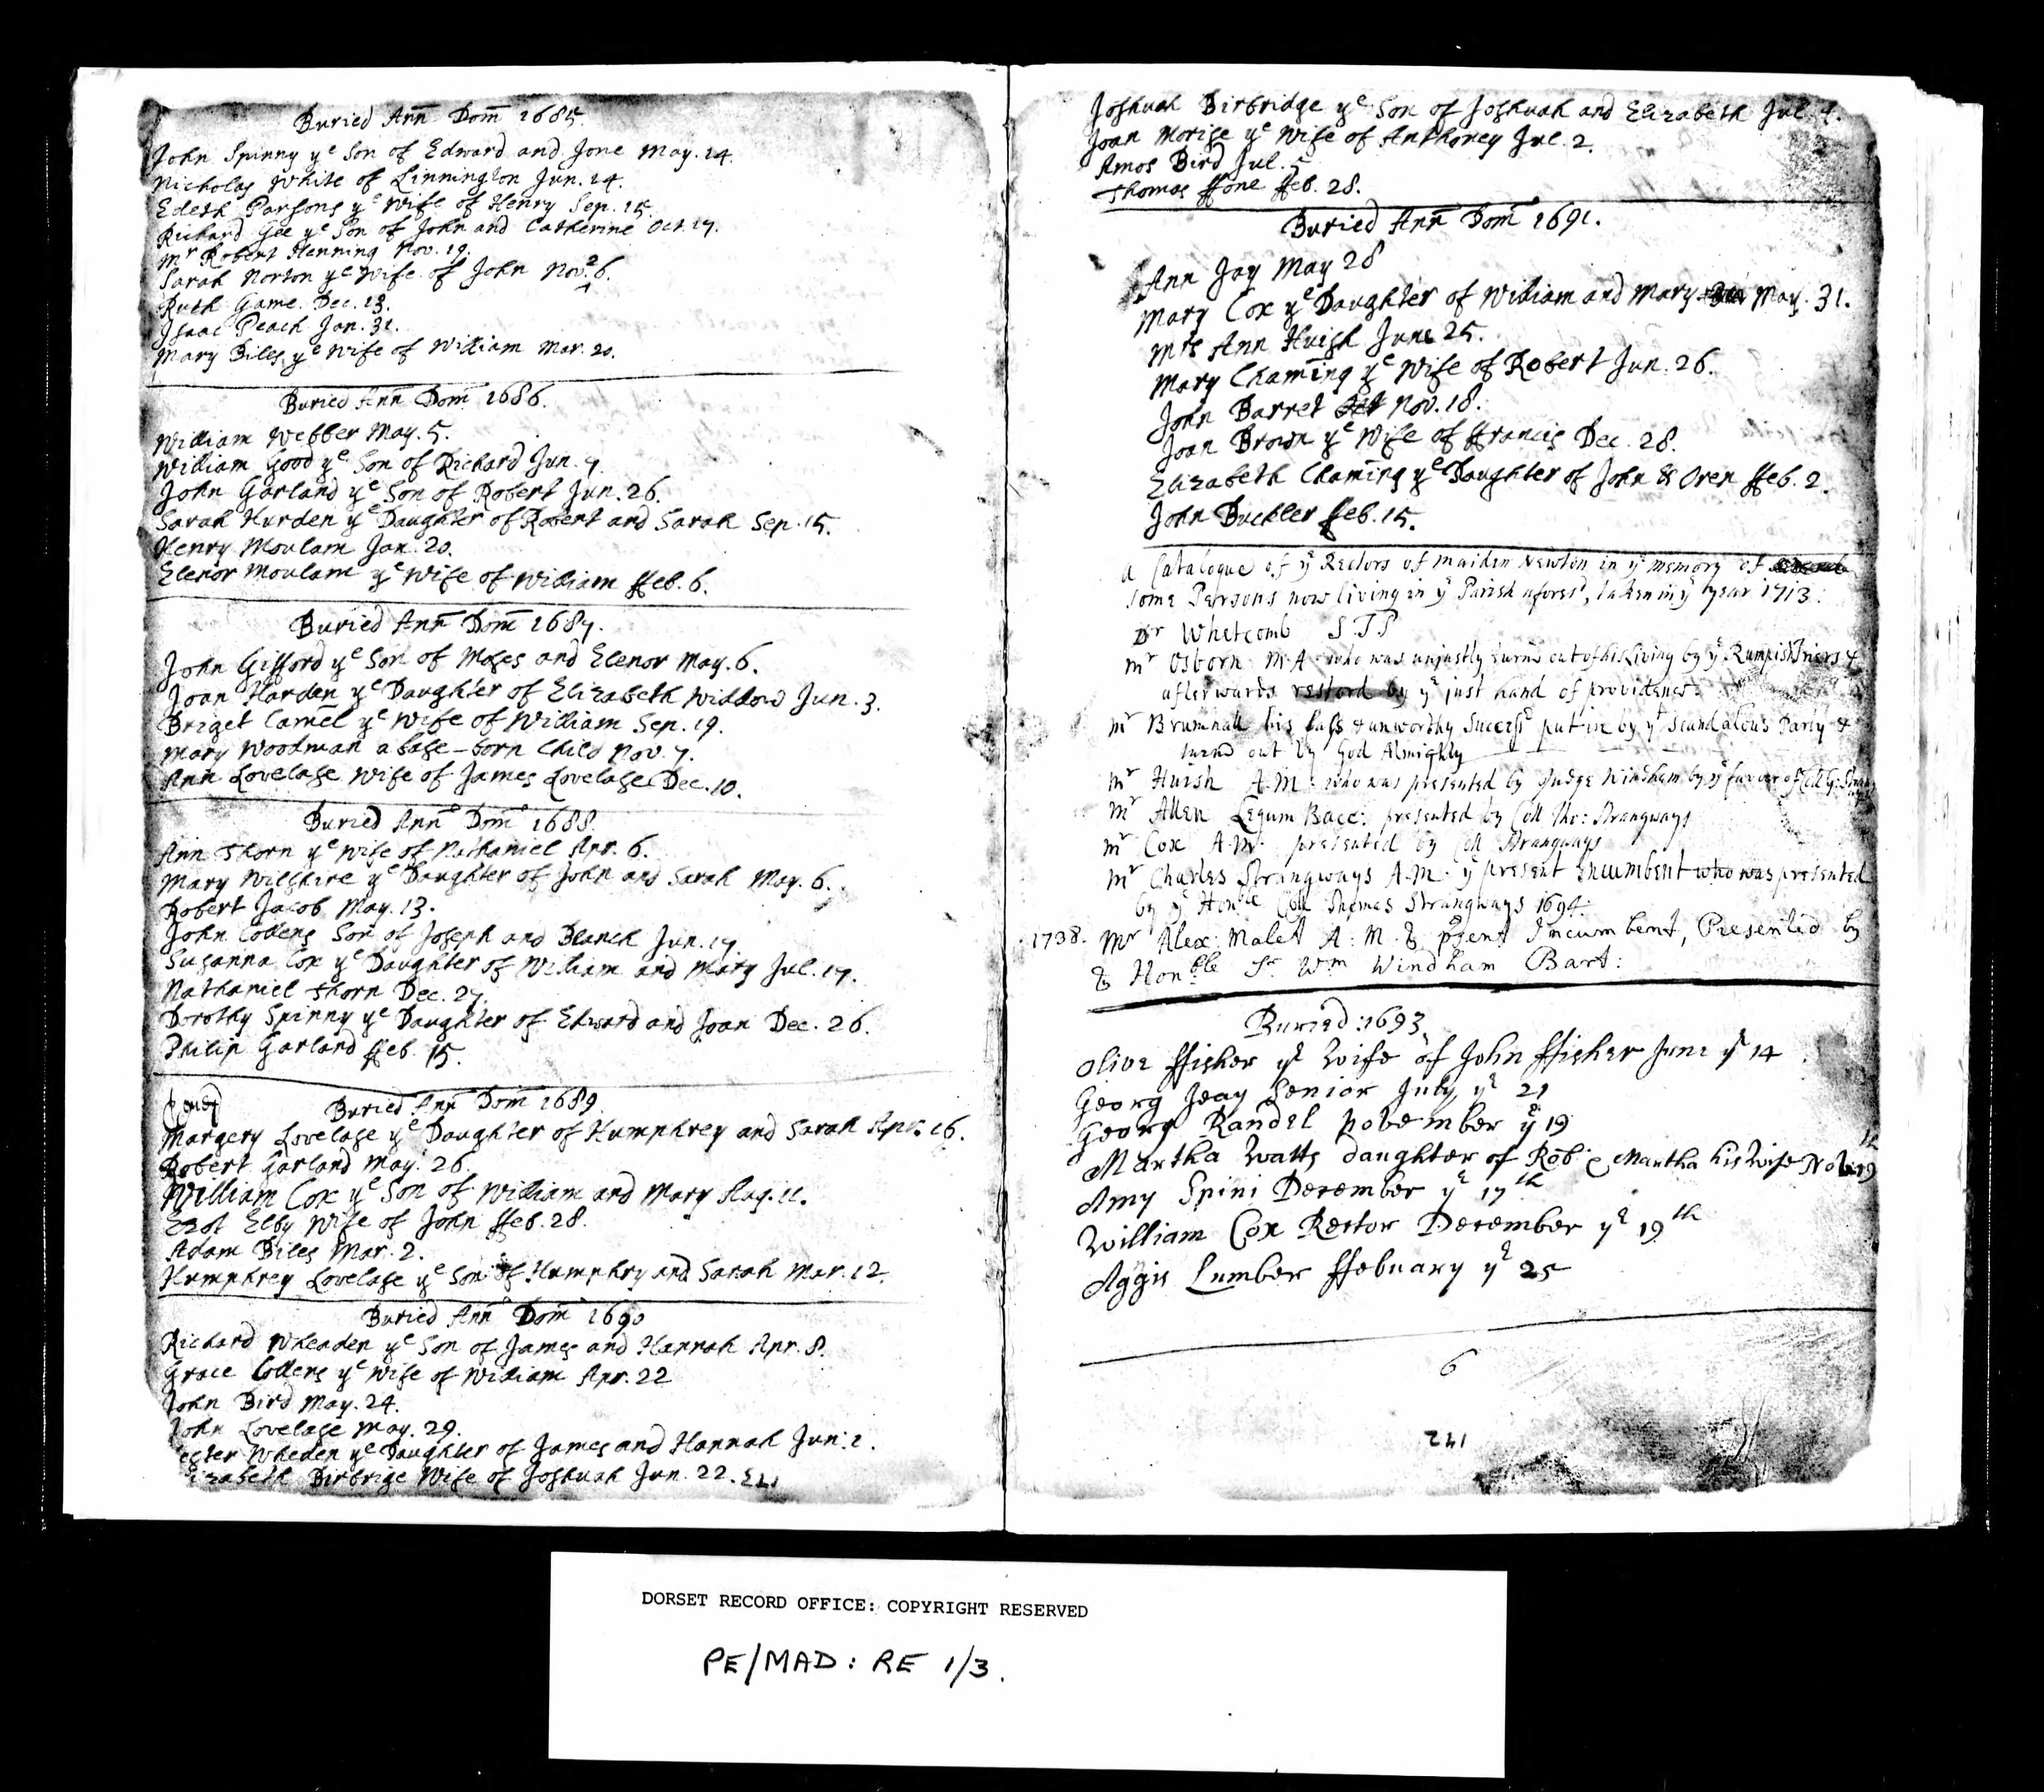 Buried Ann Dom 1685.
John Spinny ye Son of Edward and Jone May. 24.
Nicholas White of Linnington Jun. 24.
Edeth Parsons ye Wife of Henry Sep. 15.
Richard Gee ye Son of John and Catherine Oct. 17.
Mr Robert Henning Nov. 19.
Sarah Norton ye Wife of John Nov. 26.
Ruth Game. Dec. 13.
Isaac Peach Jan. 31.
Mary Biles ye Wife of William Mar. 20.
Buried Ann Dom 1686.
William Webber May. 5.
William Good ye Son of Richard Jun. 7.
John Garland ye Son of Robert Jun. 26.
Sarah Hurden ye Daughter of Robert and Sarah Sep. 15.
Henry Moulam Jan. 20.
Elenor Moulam ye Wife of William ffeb. 6.
Buried Ann Dom 1687.
John Gifford ye Son of Moses and Elenor May. 6.
Joan Harden ye Daughter of Elizabeth Widdow Jun. 3.
Briget Camel ye Wife of William Sep. 19.
Mary Woodman a base-born Child Nov. 7.
Ann Lovelase Wife of James Lovelase Dec. 10.
Buried Ann Dom 1688.
Ann Thorn ye Wife of Nathaniel Apr. 6.
Mary Wilshire ye Daughter of John and Sarah May. 6.
Robert Jacob May. 13.
John Collens Son of Joseph and Blanch Jun. 17.
Susanna Cox ye Daughter of William and Mary Jul. 17.
Nathaniel Thorn Dec. 27.
Dorothy Spinny ye Daughter of Edward and Joan Dec. 26.
Philip Garland ffeb. 15.
Buried Ann Dom 1689.
Margery Lovelase ye Daughter of Humphrey and Sarah Apr. 16.
Robert Garland May. 26.
William Cox ye Son of William and Mary Aug. 11.
Elby Wife of John ffeb. 28.
Adam Biles Mar. 2.
Humphrey Lovelase ye Son of Humphry and Sarah Mar. 12.
Buried Ann Dom 1690
Richard Wheaden ye Son of James and Hannah Apr. 8.
Grace Collens ye Wife of William Apr. 22
John Bird May. 24.
John Lovelase May. 29.
ester Wheden ye Daughter of James and Hannah Jun. 2.
izabeth Birbrige Wife of Joshuah Jun. 22.
Joshuah Birbridge ye Son of Joshuah and Elizabeth Jul.
Joan Morise ye Wife of Anthoney Jul. 2.
Amos Bird Jul. 5.
Thomas ffone ffeb. 28.
Buried Ann Dom 1691.
Ann Jay May 28
Mary Cox ye Daughter of William and Mary May. 31.
Mrs Ann Huish June 25.
Mary Chaming ye Wife of Robert Jun. 26.
John Barret Nov. 18.
Joan Brown ye Wife of ffrancis Dec. 28.
Elizabeth Chaming ye Daughter of John & Oren ffeb. 2.
John Buckler ffeb. 15.
A Catalogue of ye Rectors of Maiden Newton in ye memory of
some Persons now living in ye Parish aforesd, taken in ye year 1713:
Dr Whetcomb S.T.P
Mr Osborn M.A who was unjustly turnd out of his Living by ye Rumpish Triers &
afterwards restord by ye just hand of providence.
Mr Brumhall his base & unworthy Success put in by yt Scandalous Party &
turnd out by God Almighty
Mr Huish A.M: who was presented by Judge Windham by ye favour of Coll G:
Mr Allen Legum Bacc: presented by Coll Tho: Strangways
Mr Cox A.M. presented by Coll Strangways
Mr Charles Strangways A.M. ye present Incumbent who was presented
by ye Honble Coll Thomas Strangways 1694:
1738. Mr Alex: Malet A: M. ye psent Incumbent, Presented by
ye Honble Sr Wm Windham Bart:
Buried: 1693.
Olive ffisher ye Wife of John ffisher June ye 14
Georg Jeay Senior July ye 21
Georg Randel november ye 19
Martha Watts daughter of Rob: & Martha his Wife Nov 19
Amy Spini December ye 17th
William Cox Rector December ye 19th
Aggis Lumber ffebuary ye 25
6
DORSET RECORD OFFICE: COPYRIGHT RESERVED
PE/MAD: RE 1/3.